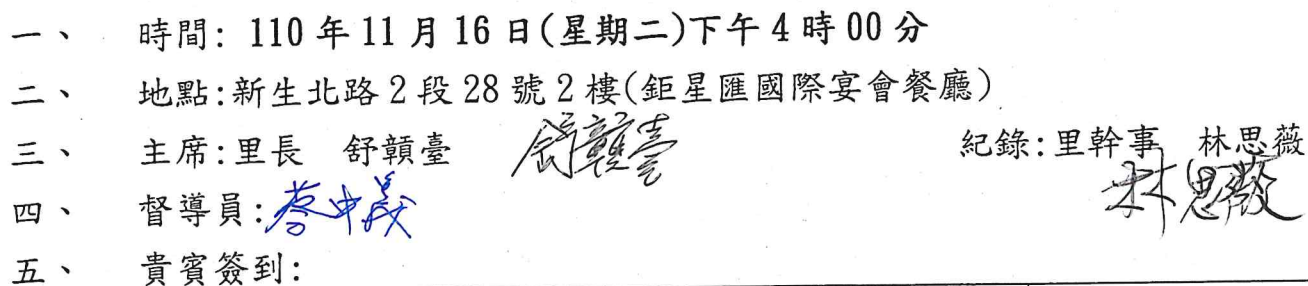 一、 時間: 110 年 11 月 16 日(星期二)下午 4 時 00 分
二、 地點:新生北路 2 段 28 號 2 樓(鉅星匯國際宴會餐廳)
三、 主席:里長 舒贛臺 舒贛臺 紀錄:里幹事 林思薇
林思薇
四、 督導員:蔡中義
五、 貴賓簽到: